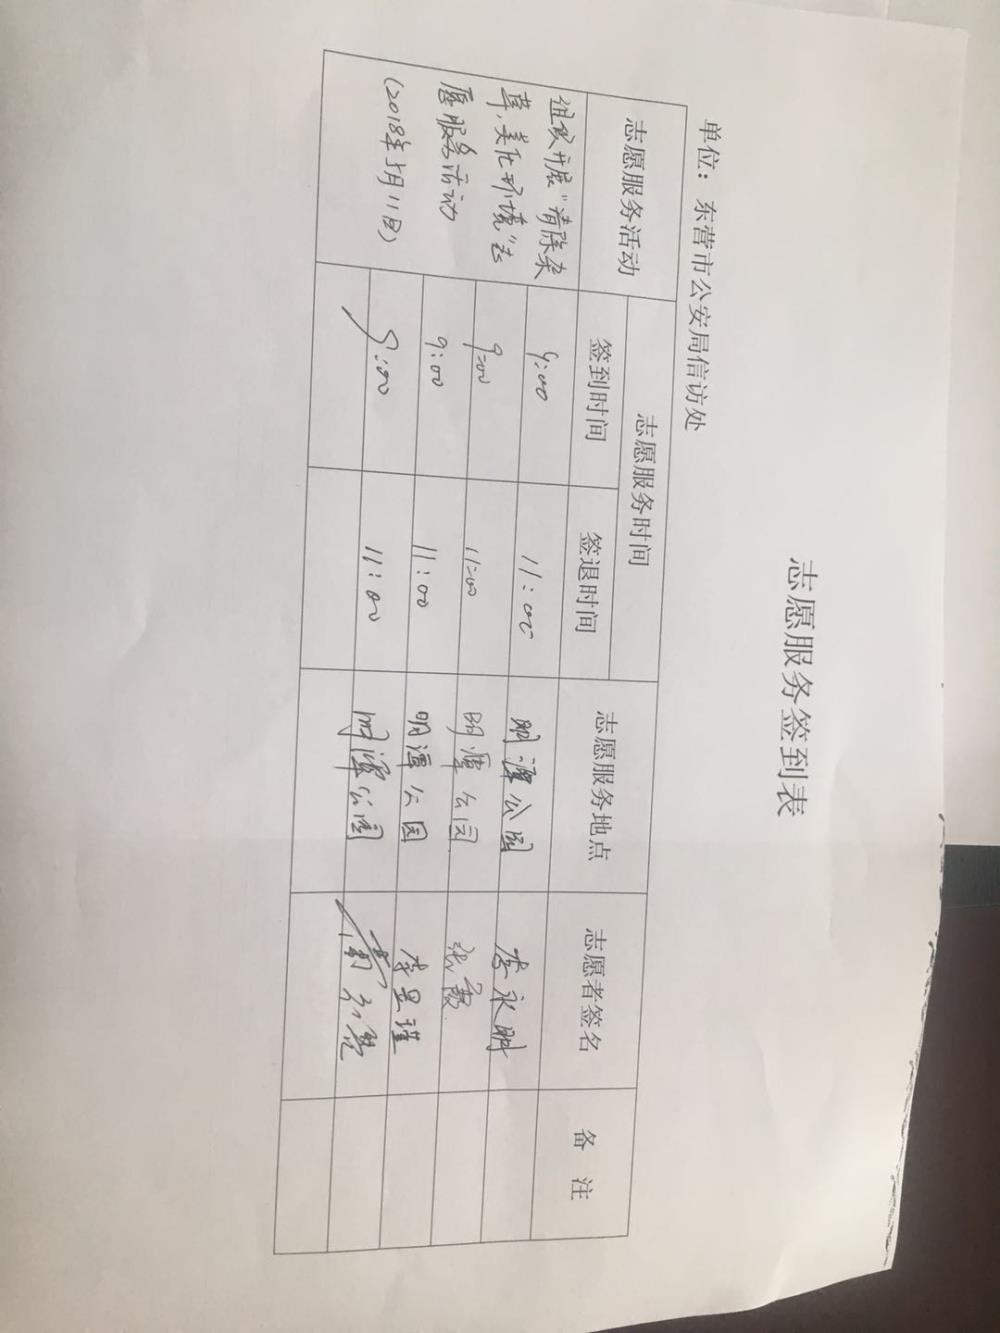 志愿服务签到表
单位：东营市公安局信访处
志愿服务活动 志愿服务时间 志愿服务地点 志愿者签名 备 注
签到时间 签退时间
组织开展“清除杂
草，美化环境”志
愿服务活动
（2018年5月11日）
9:00 11:00 明潭公园 李永鹏
9:00 11:00 明潭公园
9:00 11:00 明潭公园 李昱瑾
9:00 11:00 明潭公园